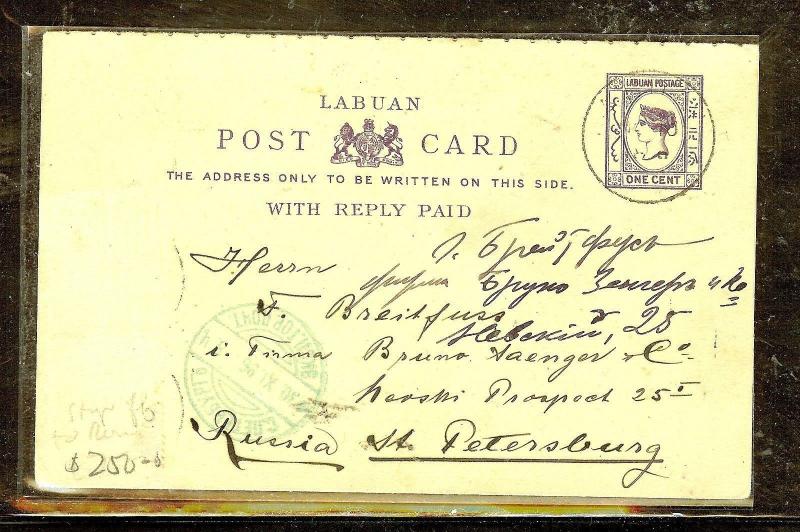 LABUAN
POST CARD
THE ADDRESS ONLY TO BE WRITTEN ON THIS SIDE.
WITH REPLY PAID
LABUAN POSTAGE
ONE CENT
Herrn
Г. Брейтфусъ
фирма Бруно Зенгеръ и Ко
F. Breitfuss
Невскій, 25
i. Firma Bruno Saenger & Co
Newski Prospect 25
Russia St. Petersburg
$250